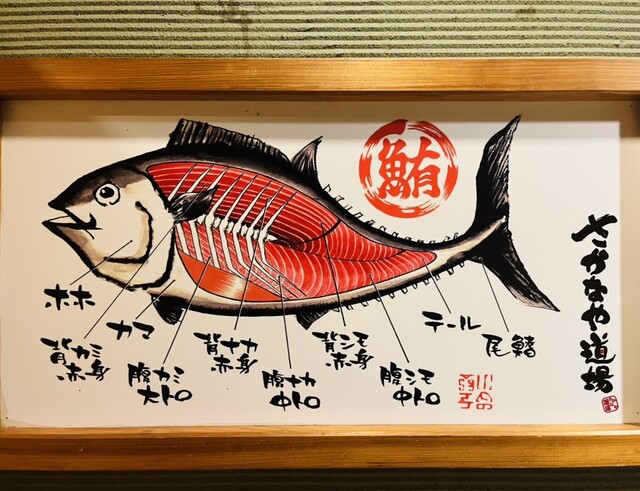 鮪
さかなや道場
ホホ
カマ
背カミ
赤身
腹カミ
大トロ
背ナカ
赤身
腹ナカ
中トロ
背シモ
赤身
腹シモ
中トロ
テール
尾鰭